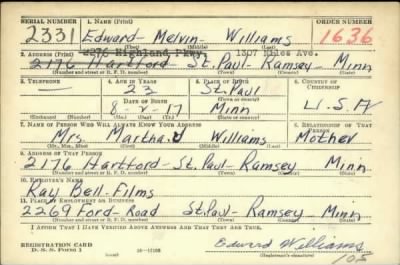 SERIAL NUMBER 1. NAME (Print) ORDER NUMBER
2331 Edward - Melvin - Williams 1636
(First) (Middle) (Last)
2. ADDRESS (Print) 2276 Highland Pkwy. 1307 Ave.
2176 Hartford - St. Paul - Ramsey - Minn
(Number and street or R. F. D. number) (Town) (County) (State)
3. TELEPHONE 4. AGE IN YEARS 5. PLACE OF BIRTH 6. COUNTRY OF CITIZENSHIP
23 St. Paul
DATE OF BIRTH (Town or county)
8 17 Minn U.S.A
(Mo.) (Day) (Yr.) (State or country)
7. NAME OF PERSON WHO WILL ALWAYS KNOW YOUR ADDRESS 8. RELATIONSHIP OF THAT PERSON
Mrs. Martha Williams Mother
(Mr., Mrs., Miss) (First) (Middle) (Last)
9. ADDRESS OF THAT PERSON
2176 Hartford - St. Paul - Ramsey Minn
(Number and street or R. F. D. number) (Town) (County) (State)
10. EMPLOYER'S NAME
Ray Bell - Films
11. PLACE OF EMPLOYMENT OR BUSINESS
2269 Ford - Road St. Paul - Ramsey - Minn
(Number and street or R. F. D. number) (Town) (County) (State)
I AFFIRM THAT I HAVE VERIFIED ABOVE ANSWERS AND THAT THEY ARE TRUE.
REGISTRATION CARD
D. S. S. Form 1 (over)
Edward Williams
(Registrant's signature)
105